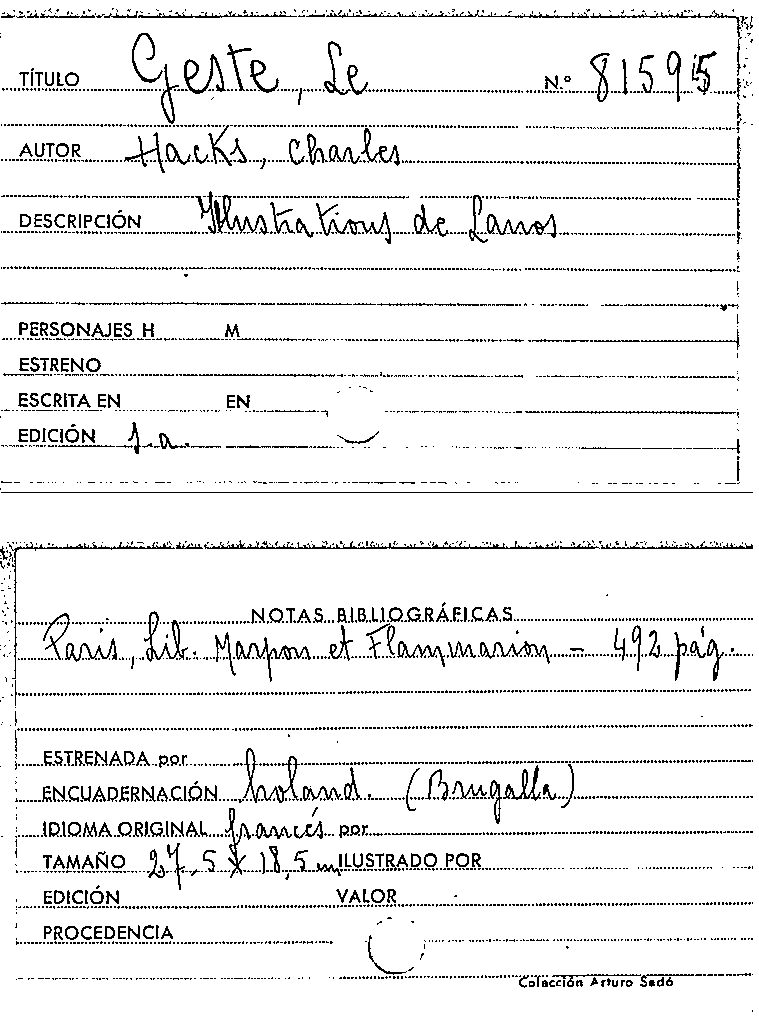 TÍTULO Geste, Le N.º 81595
AUTOR Hacks, Charles
DESCRIPCIÓN Illustrations de Lanos
PERSONAJES H M
ESTRENO
ESCRITA EN EN
EDICIÓN s.a.
NOTAS BIBLIOGRÁFICAS
Paris, Lib. Marpon et Flammarion - 492 pág.
ESTRENADA por
ENCUADERNACIÓN holand. (Brugalla)
IDIOMA ORIGINAL francés por
TAMAÑO 27,5 x 18,5 cm ILUSTRADO POR
EDICIÓN VALOR
PROCEDENCIA
Colección Arturo Sedó